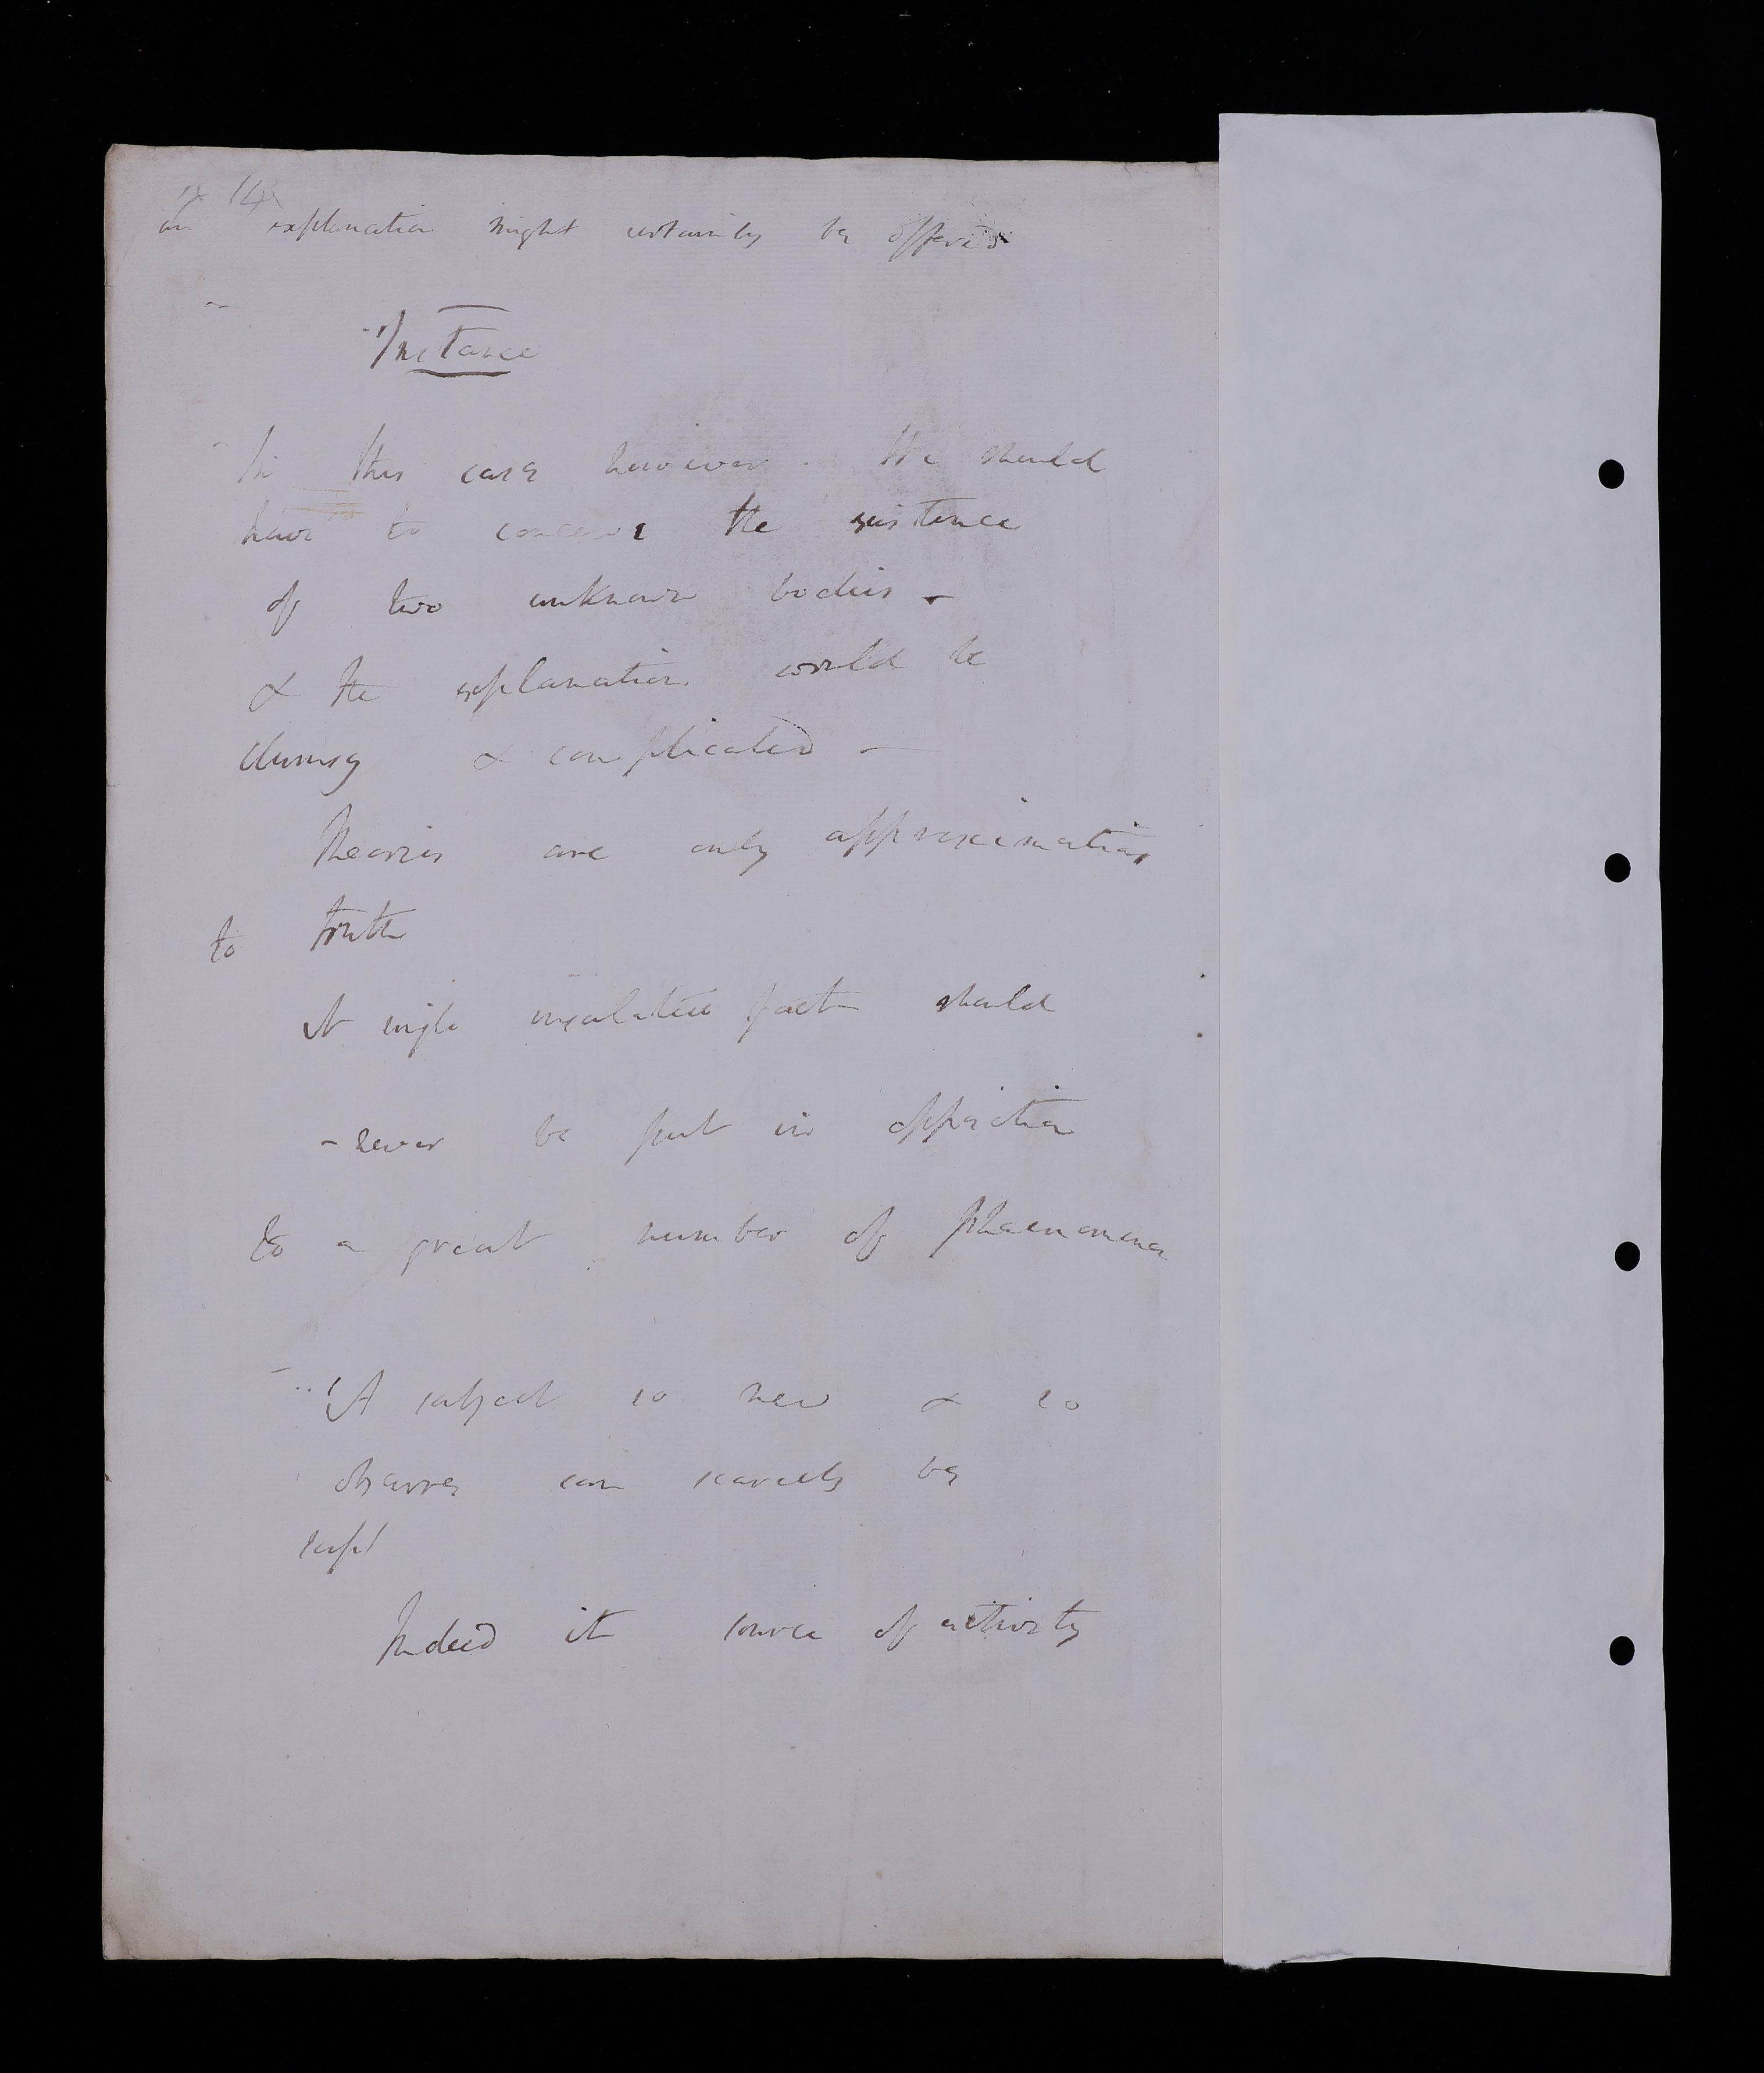 14
an explanation might certainly be offered
Instance
In this case however. We should
have to conceive the existence
of two unknown bodies -
& the explanation would be
clumsy & complicated -
Theories are only approximations
to truth
A single insulated fact should
- never be put in opposition
to a great number of phaenomena
A subject so new & so
obscure can scarcely be
Indeed it source of activity